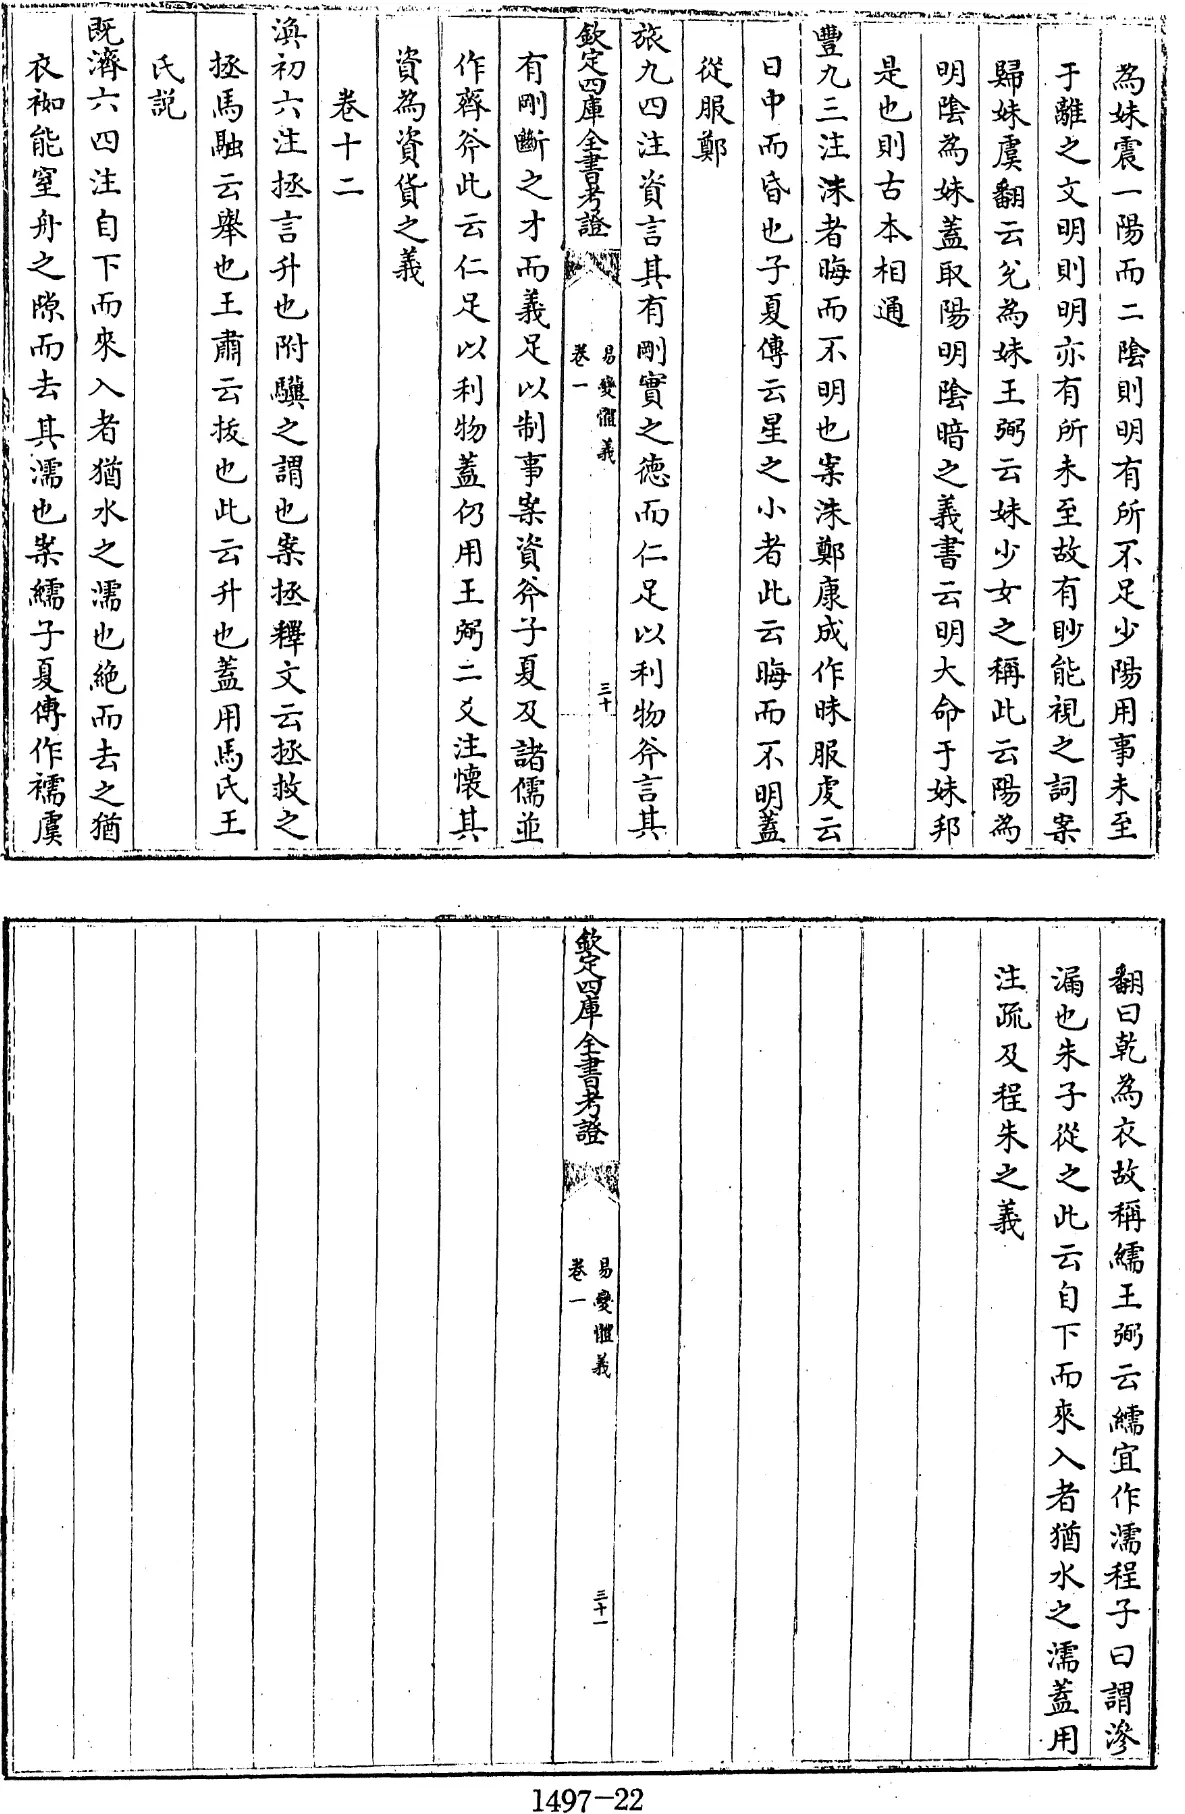 為妹震一陽而二陰則明有所不足少陽用事未至
于離之文明則明亦有所未至故有眇能視之詞案
歸妹虞翻云兊為妹王弼云妹少女之稱此云陽為
明陰為妹蓋取陽明陰暗之義書云明大命于妹邦
是也則古本相通
豐九三注沬者晦而不明也案沬鄭康成作昧服虔云
日中而昏也子夏傳云星之小者此云晦而不明蓋
從服鄭
旅九四注資言其有剛實之德而仁足以利物斧言其
欽定四庫全書考證
易變體義
卷一
三十
有剛斷之才而義足以制事案資斧子夏及諸儒並
作齊斧此云仁足以利物蓋仍用王弼二爻注懷其
資為資貨之義
卷十二
渙初六注拯言升也附驥之謂也案拯釋文云拯救之
拯馬融云舉也王肅云拔也此云升也蓋用馬氏王
氏説
既濟六四注自下而來入者猶水之濡也絶而去之猶
衣袽能窒舟之隙而去其濡也案繻子夏傳作襦虞
翻曰乾為衣故稱繻王弼云繻宜作濡程子曰謂滲
漏也朱子從之此云自下而來入者猶水之濡蓋用
注疏及程朱之義
欽定四庫全書考證
易變體義
卷一
三十一
1497-22